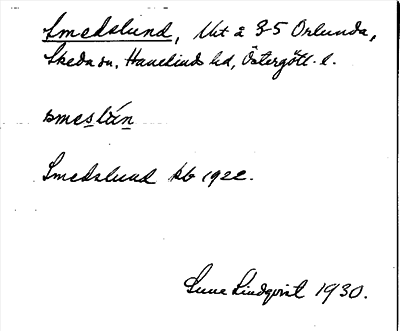 Smedslund, Utt å 3-5 Orlunda,
Skeda sn, Hanekinds hd, Östergötl. l.
smeslún
Smedslund kb 1922.
Sune Lindqvist 1930.